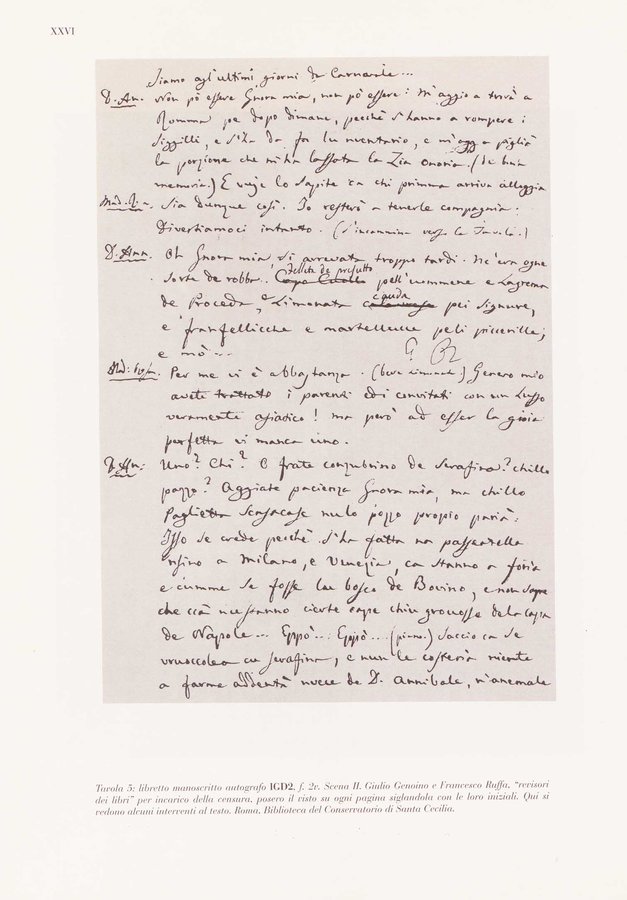 XXVI
Siamo agl'ultimi giorni di Carnevale ...
D. An. Non pò essere Gnora mia, non pò essere: m'aggio a trovà a
Romma pe dopo dimane, pecchè s'hanno a rompere i
Siggilli, e s'ha da fa lu nventario, e m'aggi a piglià
la porzione che m'ha lassata la Zia Onoria. (de bona
memoria.) E vuje lo sapite ca chi primma arriva alloggia
Sia dunque così. Io resterò a tenerle compagnia.
Divertiamoci intanto. (s'incammina verso la Tavola.)
D. Ann. Oh Gnora mia, si arrevata troppo tardi. Nc'era ogne
Fellata de presutto
sorte de robba. pell'uommene e Lagrema
cauda
de Proceda, e Limonata pei Signure,
e franfellicche e martellucce peli piccerille;
e mò ...
Per me vi è abbastanza. (beve Limonata) Genero mio
avete trattato i parenti ed i convitati con un lusso
veramente asiatico! ma però ad esser la gioia
perfetta vi manca uno.
D. An: Uno? Chi? O frate conzubrino de Serafina? chillo
pazzo? Aggiate pacienza Gnora mia, ma chillo
Paglietta scasacase nu lo pozzo propio patià:
Isso se crede pecchè s'ha fatta na passeatella
nsino a Milano, e Venezia, ca stanno a foria
e cumme se fosse lu bosco de Bovino, e non sape
che ccà nce stanno cierte cape chiù grouosse de la capa
de Napole ... Eppò ... Eppò ... (piano.) Saccio ca se
vruoccolea cu Serafina, e nun le costeria niente
a farme addentà nuce de D. Annibale, n'anemale
Tavola 5: libretto manoscritto autografo IGD2, f. 2v. Scena II. Giulio Genoino e Francesco Ruffa, "revisori
dei libri" per incarico della censura, posero il visto su ogni pagina siglandola con le loro iniziali. Qui si
vedono alcuni interventi al testo. Roma, Biblioteca del Conservatorio di Santa Cecilia.